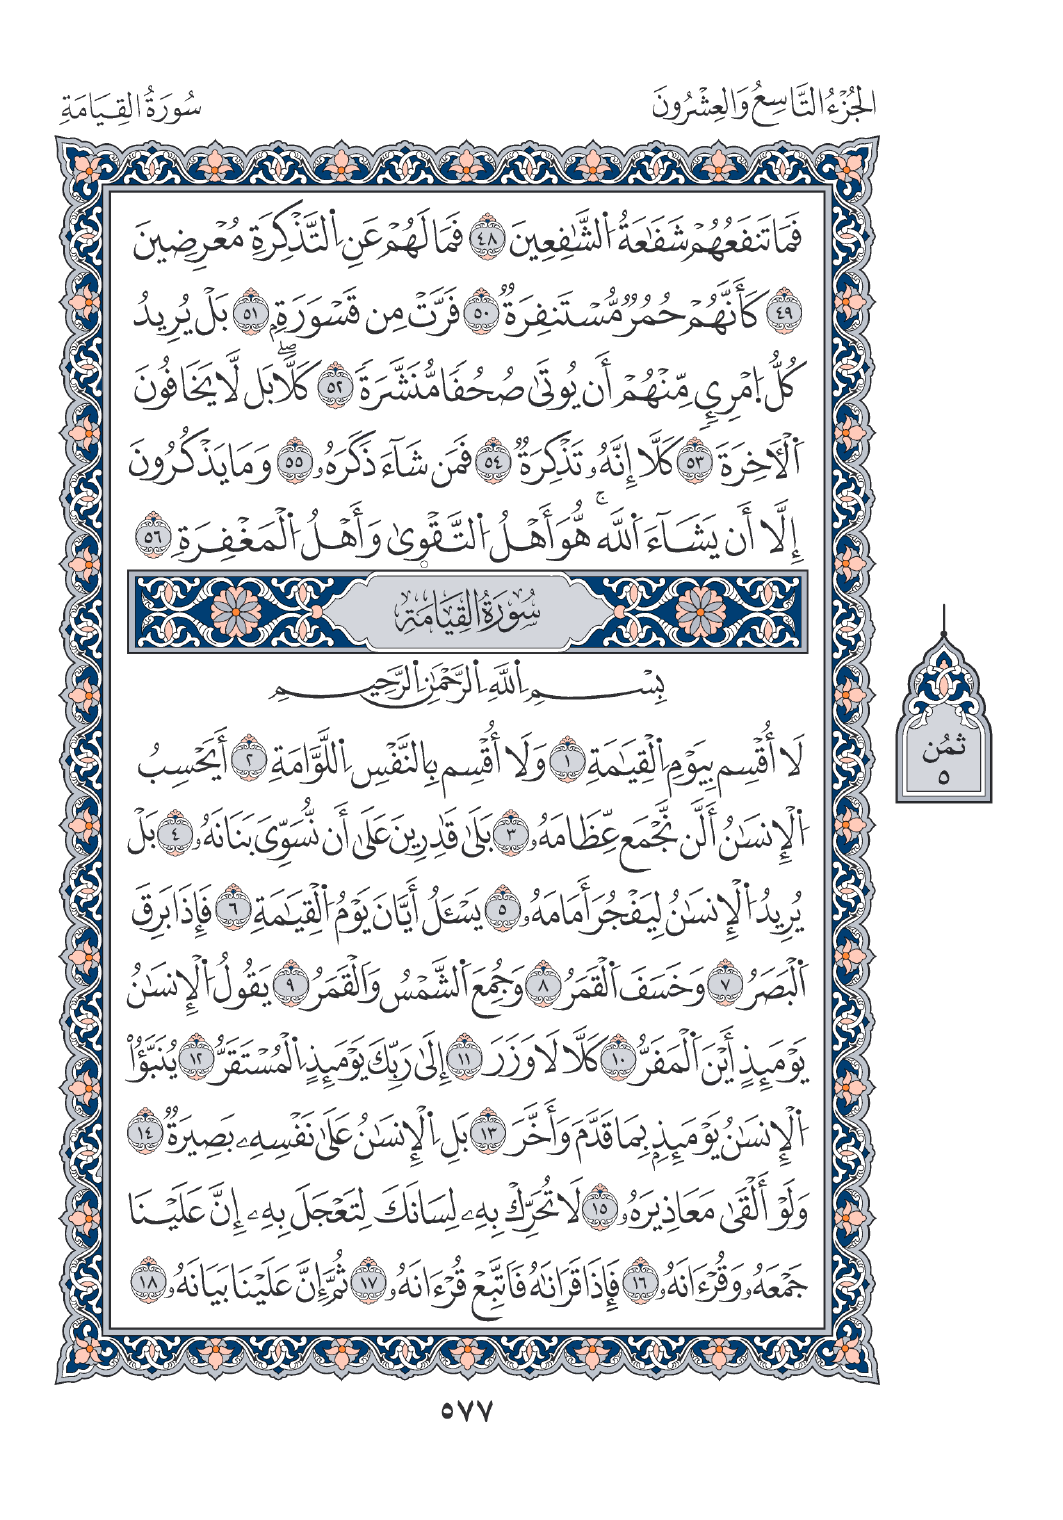 الجُزْءُ التَّاسِعُ وَالعِشْرُونَ
سُورَةُ القِيَامَةِ
فَمَا تَنفَعُهُمْ شَفَٰعَةُ اُ۬لشَّٰفِعِينَ ٤٨ فَمَا لَهُمْ عَنِ اِ۬لتَّذْكِرَةِ مُعْرِضِينَ
٤٩ كَأَنَّهُمْ حُمُرٌ مُّسْتَنفِرَةٌ ٥٠ فَرَّتْ مِن قَسْوَرَةِۭ ٥١ بَلْ يُرِيدُ
كُلُّ اُ۪مْرِيٕٖ مِّنْهُمْ أَن يُوتَىٰ صُحُفًا مُّنَشَّرَةً ٥٢ كَلَّاۖ بَل لَّا يَخَافُونَ
اَ۬لْأٓخِرَةَ ٥٣ كَلَّا إِنَّهُۥ تَذْكِرَةٌ ٥٤ فَمَن شَآءَ ذَكَرَهُۥ ٥٥ وَمَا يَذْكُرُونَ
إِلَّا أَن يَشَآءَ اَ۬للَّهُۚ هُّوَ أَهْلُ اُ۬لتَّقْو۪ىٰ وَأَهْلُ اُ۬لْمَغْفِرَةِ ٥٦
سُورَةُ القِيَامَةِ
بِسْمِ اِ۬للَّهِ اِ۬لرَّحْمَٰنِ اِ۬لرَّحِيمِ
لَا أُقْسِم بِيَوْمِ اِ۬لْقِيَٰمَةِ ١ وَلَا أُقْسِم بِالنَّفْسِ اِ۬للَّوَّامَةِ ٢ أَيَحْسِبُ
اُ۬لْإِنسَٰنُ أَلَّن نَّجْمَع عِّظَامَهُۥ ٣ بَلَىٰ قَٰدِرِينَ عَلَىٰ أَن نُّسَوِّيَ بَنَانَهُۥ ٤ بَلْ
يُرِيدُ اُ۬لْإِنسَٰنُ لِيَفْجُرَ أَمَامَهُۥ ٥ يَسْـَٔلُ أَيَّانَ يَوْمُ اُ۬لْقِيَٰمَةِ ٦ فَإِذَا بَرِقَ
اَ۬لْبَصَرُ ٧ وَخَسَفَ اَ۬لْقَمَرُ ٨ وَجُمِعَ اَ۬لشَّمْسُ وَالْقَمَرُ ٩ يَقُولُ اُ۬لْإِنسَٰنُ
يَوْمَئِذٍ أَيْنَ اَ۬لْمَفَرُّ ١٠ كَلَّا لَا وَزَرَ ١١ إِلَىٰ رَبِّكَ يَوْمَئِذٍ اِ۬لْمُسْتَقَرُّ ١٢ يُنَبَّؤُاْ
اُ۬لْإِنسَٰنُ يَوْمَئِذِۭ بِمَا قَدَّمَ وَأَخَّرَ ١٣ بَلِ اِ۬لْإِنسَٰنُ عَلَىٰ نَفْسِهِۦ بَصِيرَةٌ ١٤
وَلَوْ أَلْقَىٰ مَعَاذِيرَهُۥ ١٥ لَا تُحَرِّكْ بِهِۦ لِسَانَكَ لِتَعْجَلَ بِهِۦ إِنَّ عَلَيْنَا
جَمْعَهُۥ وَقُرْءَانَهُۥ ١٦ فَإِذَا قَرَانَٰهُ فَاتَّبِعْ قُرْءَانَهُۥ ١٧ ثُمَّ إِنَّ عَلَيْنَا بَيَانَهُۥ ١٨
ثمُن
٥
٥٧٧